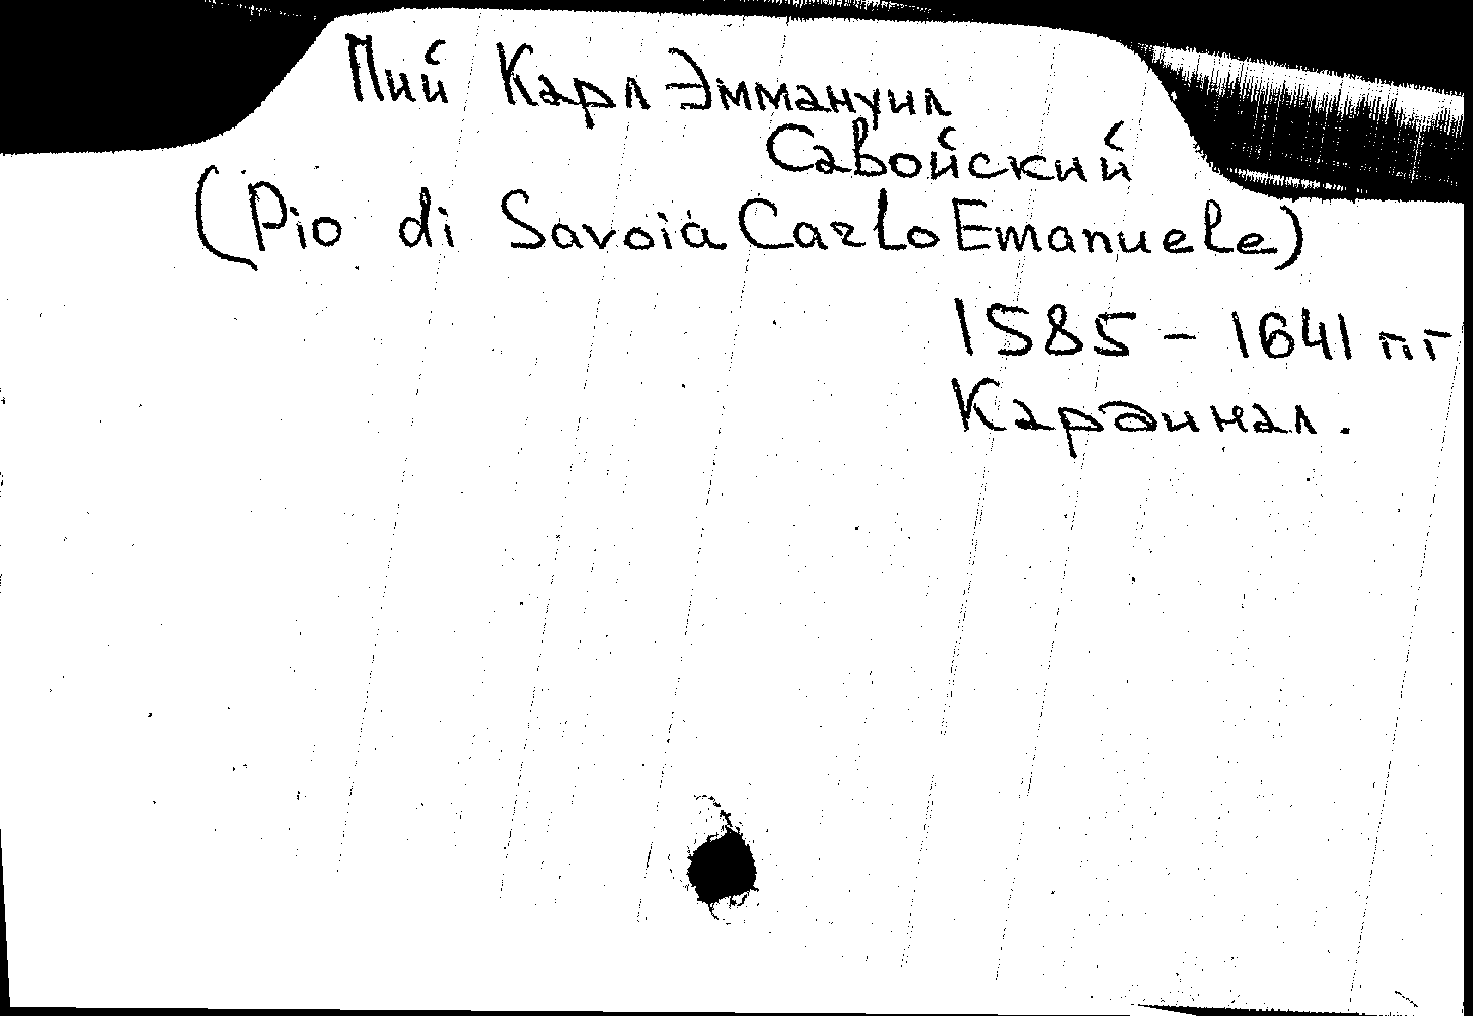 Пий Карл Эммануил
Савойский
(Pio di Savoia Carlo Emanuele)
1585 - 1641 гг
Кардинал.